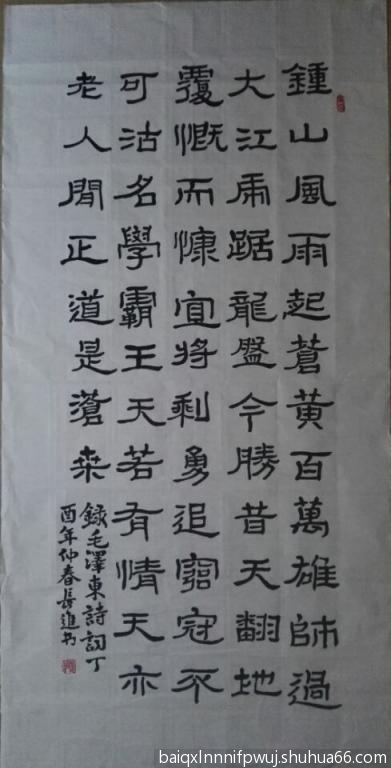 鍾山風雨起蒼黃百萬雄師過
大江虎踞龍盤今勝昔天翻地
覆慨而慷宜將剩勇追窮寇不
可沽名學霸王天若有情天亦
老人間正道是滄桑
錄毛澤東詩詞丁
酉年仲春長進书
baiqxlnnnifpwuj.shuhua66.com